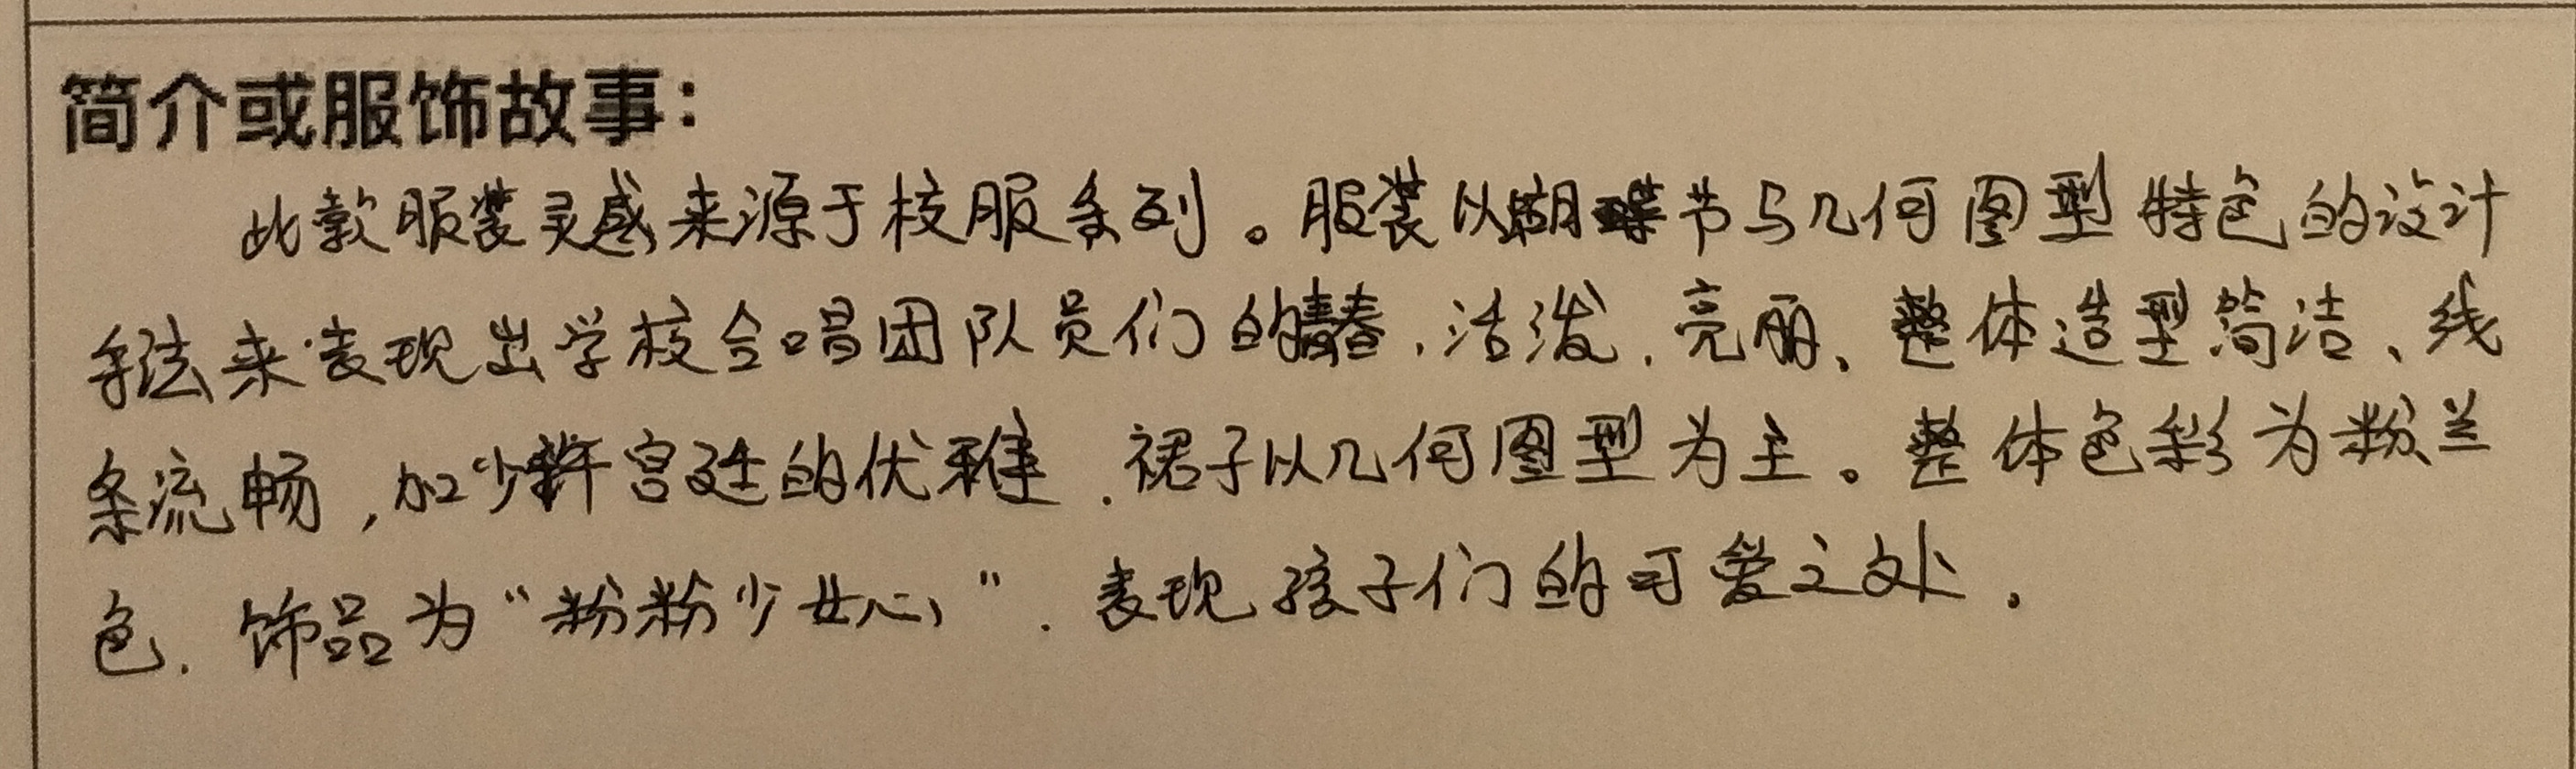 简介或服饰故事：
此款服装灵感来源于校服系列。服装以蝴蝶节与几何图型特色的设计
手法来表现出学校合唱团队员们的青春，活泼，亮丽、整体造型简洁、线
条流畅，加少许宫廷的优雅，裙子以几何图型为主。整体色彩为粉兰
色，饰品为“粉粉少女心”，表现孩子们的可爱之处。